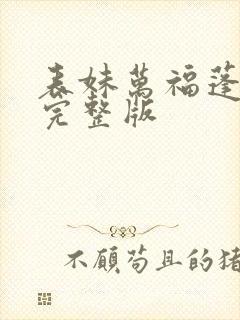 表妹萬福蓬
完整版
不顾苟且的猪